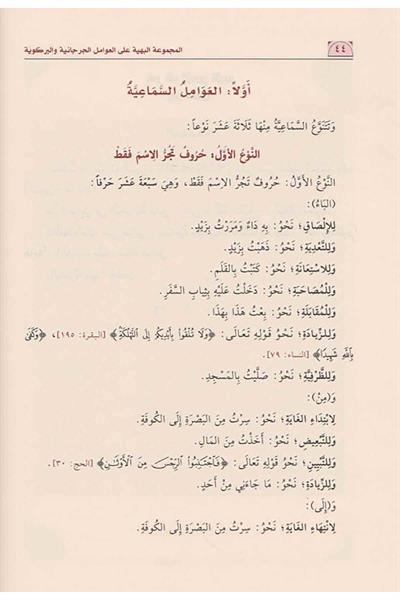 ٤٤ المجموعة البهية على العوامل الجرجانية والبركوية
أَوَّلًا: العَوَامِلُ السَّمَاعِيَّةُ
وَتَتَنَوَّعُ السَّمَاعِيَّةُ مِنْهَا ثَلَاثَةَ عَشَرَ نَوْعاً:
النَّوْعُ الأَوَّلُ: حُرُوفٌ تَجُرُّ الِاسْمَ فَقَطْ
النَّوْعُ الأَوَّلُ: حُرُوفٌ تَجُرُّ الِاسْمَ فَقَطْ، وَهِيَ سَبْعَةَ عَشَرَ حَرْفاً:
(البَاءُ):
لِلإِلْصَاقِ؛ نَحْوُ: بِهِ دَاءٌ وَمَرَرْتُ بِزَيْدٍ.
وَلِلتَّعْدِيَةِ؛ نَحْوُ: ذَهَبْتُ بِزَيْدٍ.
وَلِلاسْتِعَانَةِ؛ نَحْوُ: كَتَبْتُ بِالقَلَمِ.
وَلِلْمُصَاحَبَةِ؛ نَحْوُ: دَخَلْتُ عَلَيْهِ بِثِيَابِ السَّفَرِ.
وَلِلْمُقَابَلَةِ؛ نَحْوُ: بِعْتُ هَذَا بِهَذَا.
وَلِلزِّيَادَةِ؛ نَحْوُ قَوْلِهِ تَعَالَى: ﴿وَلَا تُلْقُوا بِأَيْدِيكُمْ إِلَى التَّهْلُكَةِ﴾ [البقرة: ١٩٥]، ﴿وَكَفَى
بِاللَّهِ شَهِيدًا﴾ [النساء: ٧٩].
وَلِلظَّرْفِيَّةِ؛ نَحْوُ: صَلَّيْتُ بِالمَسْجِدِ.
وَ(مِنْ):
لِابْتِدَاءِ الغَايَةِ؛ نَحْوُ: سِرْتُ مِنَ البَصْرَةِ إِلَى الكُوفَةِ.
وَلِلتَّبْعِيضِ؛ نَحْوُ: أَخَذْتُ مِنَ المَالِ.
وَلِلتَّبْيِينِ؛ نَحْوُ قَوْلِهِ تَعَالَى: ﴿فَاجْتَنِبُوا الرِّجْسَ مِنَ الْأَوْثَانِ﴾ [الحج: ٣٠].
وَلِلزِّيَادَةِ؛ نَحْوُ: مَا جَاءَنِي مِنْ أَحَدٍ.
وَ(إِلَى):
لِانْتِهَاءِ الغَايَةِ؛ نَحْوُ: سِرْتُ مِنَ البَصْرَةِ إِلَى الكُوفَةِ.